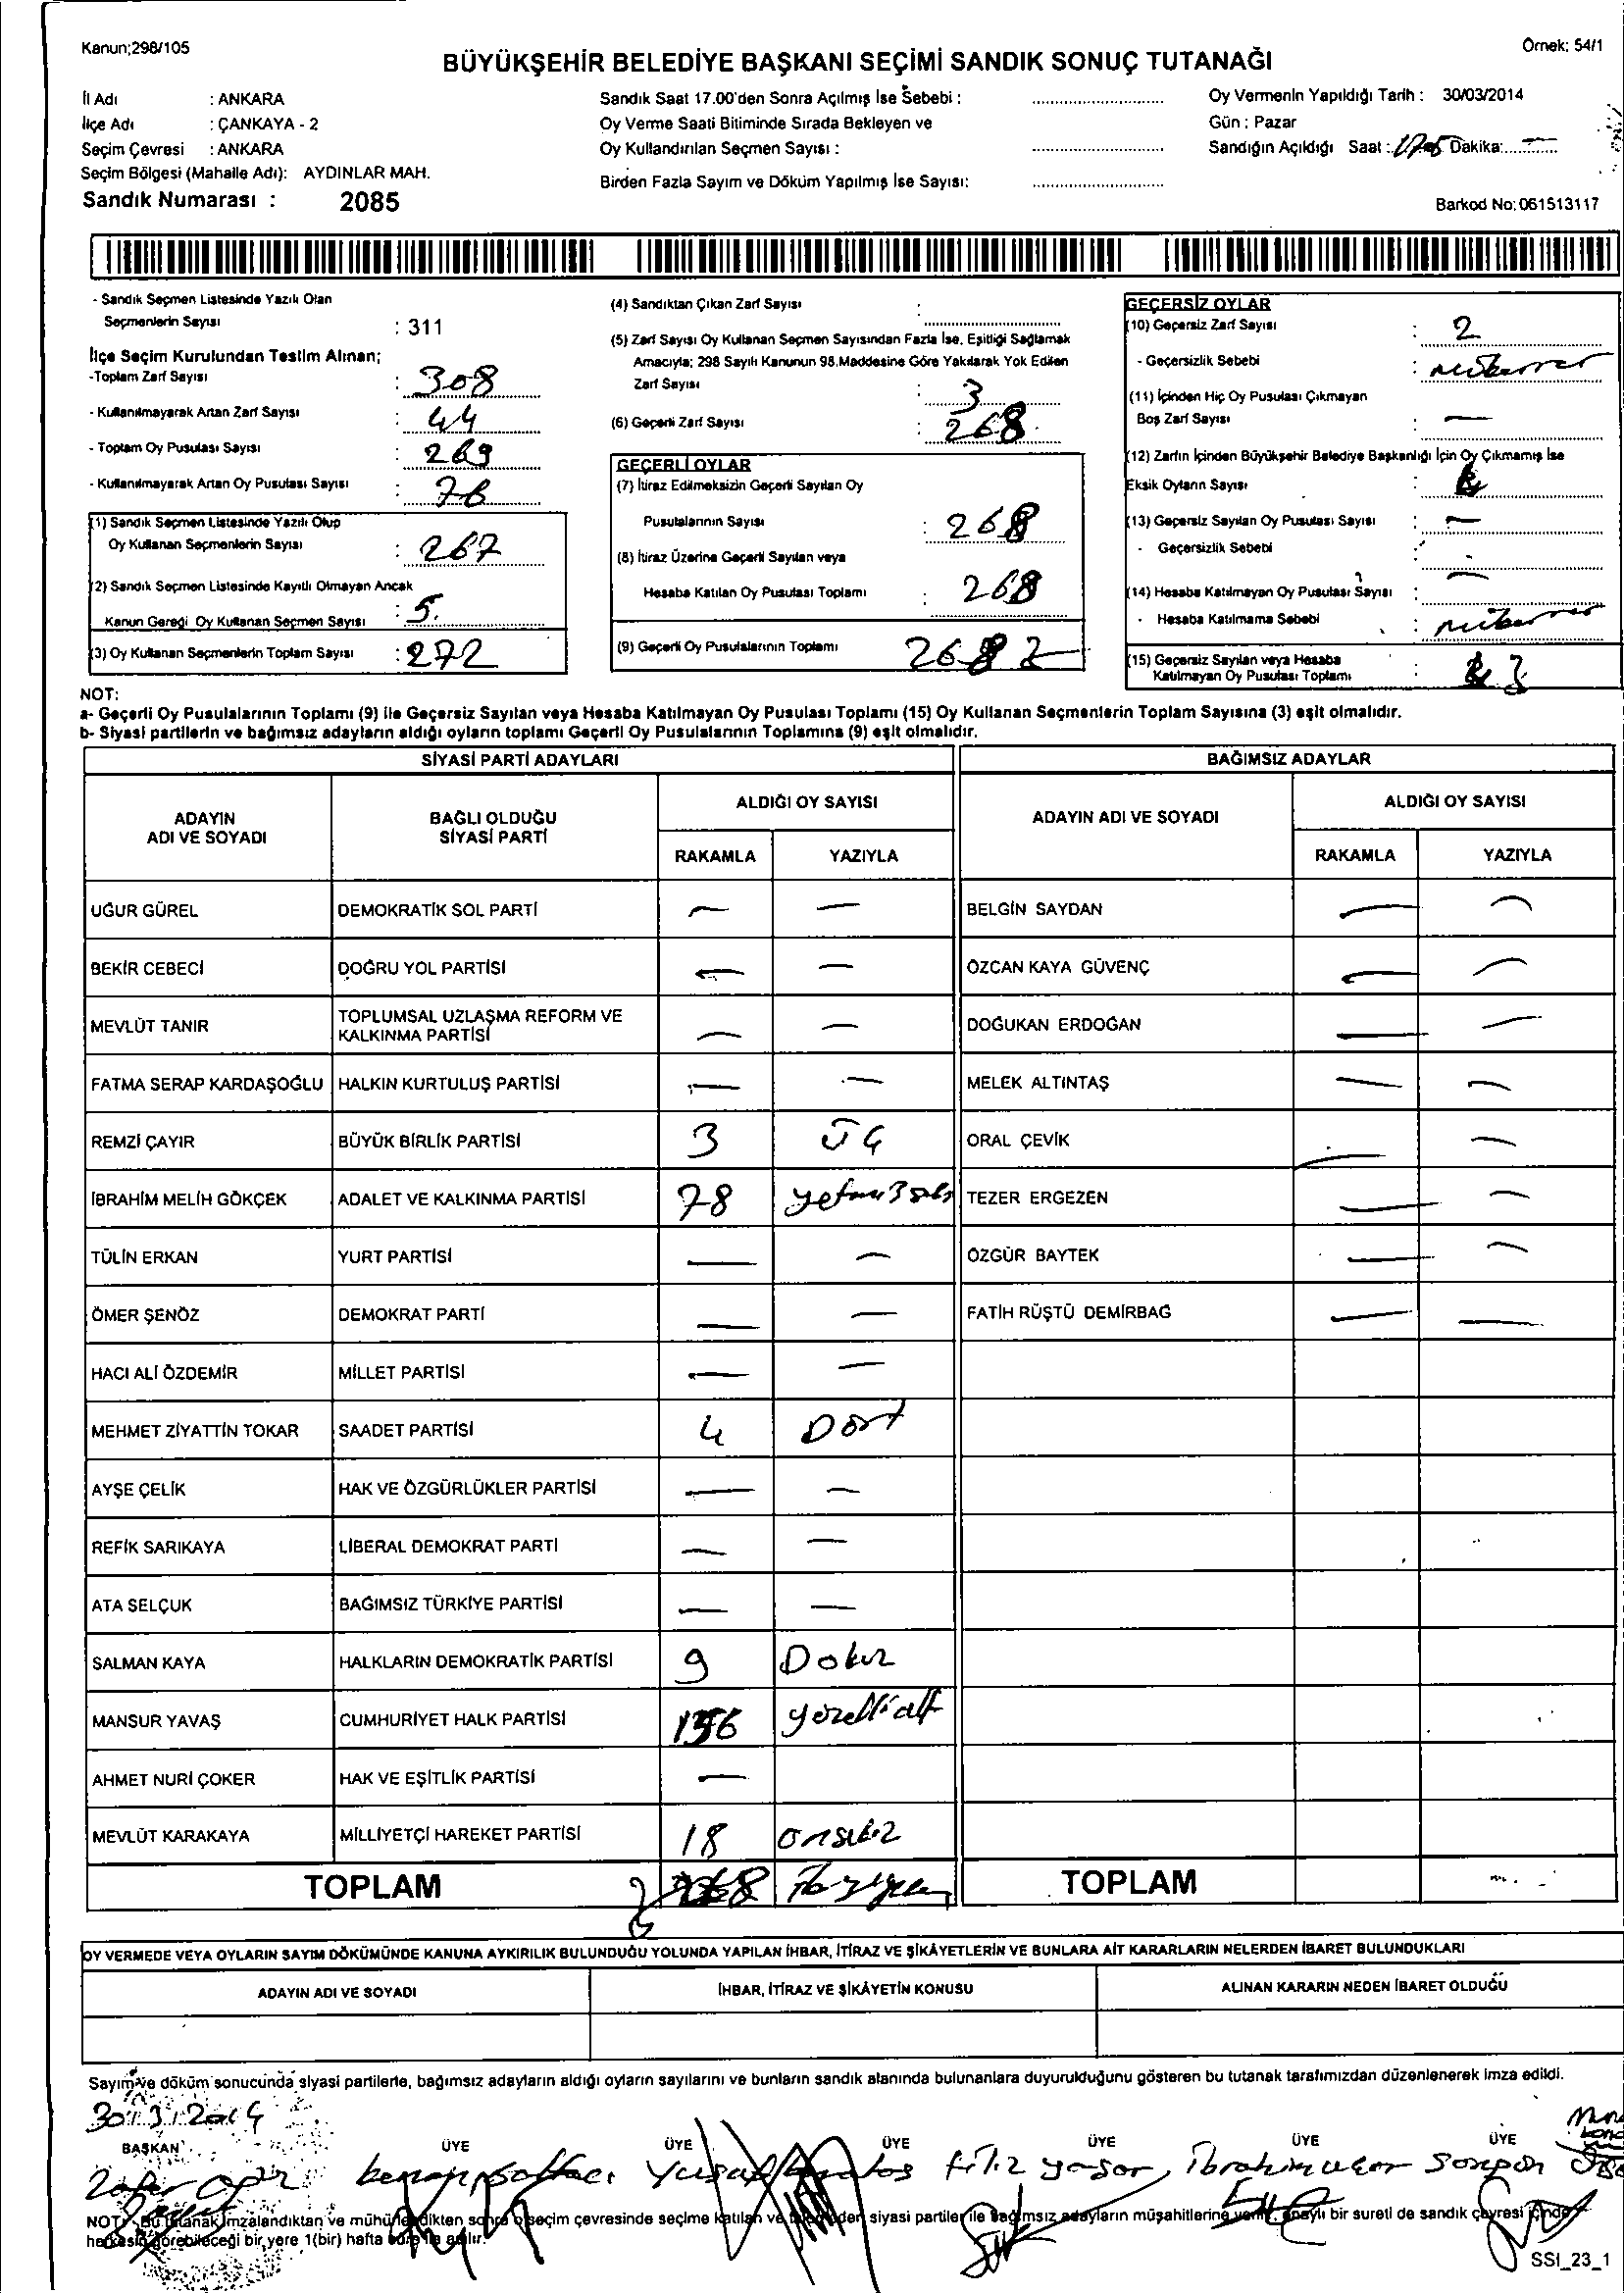 Kanun;298/105
Örnek: 54/1
BÜYÜKŞEHİR BELEDİYE BAŞKANI SEÇİMİ SANDIK SONUÇ TUTANAĞI
İl Adı : ANKARA
İlçe Adı : ÇANKAYA - 2
Seçim Çevresi : ANKARA
Seçim Bölgesi (Mahalle Adı): AYDINLAR MAH.
Sandık Numarası : 2085
Sandık Saat 17.00'den Sonra Açılmış İse Sebebi :
Oy Verme Saati Bitiminde Sırada Bekleyen ve
Oy Kullandırılan Seçmen Sayısı :
Birden Fazla Sayım ve Döküm Yapılmış İse Sayısı:
Oy Vermenin Yapıldığı Tarih : 30/03/2014
Gün : Pazar
Sandığın Açıldığı Saat : Dakika:
Barkod No: 061513117
- Sandık Seçmen Listesinde Yazılı Olan
Seçmenlerin Sayısı : 311
İlçe Seçim Kurulundan Teslim Alınan;
-Toplam Zarf Sayısı : 308
- Kullanılmayarak Artan Zarf Sayısı : 44
- Toplam Oy Pusulası Sayısı : 269
- Kullanılmayarak Artan Oy Pusulası Sayısı : 76
(1) Sandık Seçmen Listesinde Yazılı Olup
Oy Kullanan Seçmenlerin Sayısı : 267
(2) Sandık Seçmen Listesinde Kayıtlı Olmayan Ancak
Kanun Gereği Oy Kullanan Seçmen Sayısı : 5.
(3) Oy Kullanan Seçmenlerin Toplam Sayısı : 272
(4) Sandıktan Çıkan Zarf Sayısı :
(5) Zarf Sayısı Oy Kullanan Seçmen Sayısından Fazla İse, Eşitliği Sağlamak
Amacıyla; 298 Sayılı Kanunun 98.Maddesine Göre Yakılarak Yok Edilen
Zarf Sayısı : 3
(6) Geçerli Zarf Sayısı : 268
GEÇERLİ OYLAR
(7) İtiraz Edilmeksizin Geçerli Sayılan Oy
Pusulalarının Sayısı : 268
(8) İtiraz Üzerine Geçerli Sayılan veya
Hesaba Katılan Oy Pusulası Toplamı : 268
(9) Geçerli Oy Pusulalarının Toplamı 268
GEÇERSİZ OYLAR
(10) Geçersiz Zarf Sayısı : 2
- Geçersizlik Sebebi : mükerrer
(11) İçinden Hiç Oy Pusulası Çıkmayan
Boş Zarf Sayısı : —
(12) Zarfın İçinden Büyükşehir Belediye Başkanlığı İçin Oy Çıkmamış İse
Eksik Oyların Sayısı :
(13) Geçersiz Sayılan Oy Pusulası Sayısı : —
- Geçersizlik Sebebi :
(14) Hesaba Katılmayan Oy Pusulası Sayısı : —
- Hesaba Katılmama Sebebi : mükerrer
(15) Geçersiz Sayılan veya Hesaba
Katılmayan Oy Pusulası Toplamı : 3
NOT:
a- Geçerli Oy Pusulalarının Toplamı (9) ile Geçersiz Sayılan veya Hesaba Katılmayan Oy Pusulası Toplamı (15) Oy Kullanan Seçmenlerin Toplam Sayısına (3) eşit olmalıdır.
b- Siyasi partilerin ve bağımsız adayların aldığı oyların toplamı Geçerli Oy Pusulalarının Toplamına (9) eşit olmalıdır.
SİYASİ PARTİ ADAYLARI BAĞIMSIZ ADAYLAR
ADAYIN ADI VE SOYADI BAĞLI OLDUĞU SİYASİ PARTİ ALDIĞI OY SAYISI ADAYIN ADI VE SOYADI ALDIĞI OY SAYISI
RAKAMLA YAZIYLA RAKAMLA YAZIYLA
UĞUR GÜREL DEMOKRATİK SOL PARTİ — — BELGİN SAYDAN — —
BEKİR CEBECİ DOĞRU YOL PARTİSİ — — ÖZCAN KAYA GÜVENÇ — —
MEVLÜT TANIR TOPLUMSAL UZLAŞMA REFORM VE KALKINMA PARTİSİ — — DOĞUKAN ERDOĞAN — —
FATMA SERAP KARDAŞOĞLU HALKIN KURTULUŞ PARTİSİ — — MELEK ALTINTAŞ — —
REMZİ ÇAYIR BÜYÜK BİRLİK PARTİSİ 3 ÜÇ ORAL ÇEVİK — —
İBRAHİM MELİH GÖKÇEK ADALET VE KALKINMA PARTİSİ 78 TEZER ERGEZEN — —
TÜLİN ERKAN YURT PARTİSİ — — ÖZGÜR BAYTEK — —
ÖMER ŞENÖZ DEMOKRAT PARTİ — — FATİH RÜŞTÜ DEMİRBAĞ — —
HACI ALİ ÖZDEMİR MİLLET PARTİSİ — —
MEHMET ZİYATTİN TOKAR SAADET PARTİSİ 4 Dört
AYŞE ÇELİK HAK VE ÖZGÜRLÜKLER PARTİSİ — —
REFİK SARIKAYA LİBERAL DEMOKRAT PARTİ — —
ATA SELÇUK BAĞIMSIZ TÜRKİYE PARTİSİ — —
SALMAN KAYA HALKLARIN DEMOKRATİK PARTİSİ 9 Dokuz
MANSUR YAVAŞ CUMHURİYET HALK PARTİSİ 156 yüzellialtı
AHMET NURİ ÇOKER HAK VE EŞİTLİK PARTİSİ —
MEVLÜT KARAKAYA MİLLİYETÇİ HAREKET PARTİSİ 18 onsekiz
TOPLAM 268 TOPLAM
OY VERMEDE VEYA OYLARIN SAYIM DÖKÜMÜNDE KANUNA AYKIRILIK BULUNDUĞU YOLUNDA YAPILAN İHBAR, İTİRAZ VE ŞİKÂYETLERİN VE BUNLARA AİT KARARLARIN NELERDEN İBARET BULUNDUKLARI
ADAYIN ADI VE SOYADI İHBAR, İTİRAZ VE ŞİKÂYETİN KONUSU ALINAN KARARIN NEDEN İBARET OLDUĞU
Sayım ve döküm sonucunda siyasi partilerle, bağımsız adayların aldığı oyların sayılarını ve bunların sandık alanında bulunanlara duyurulduğunu gösteren bu tutanak tarafımızdan düzenlenerek imza edildi.
30.3.2014
BAŞKAN ÜYE ÜYE ÜYE ÜYE ÜYE ÜYE
filiz yaşar
NOT: Bu tutanak imzalandıktan ve mühürlendikten sonra o seçim çevresinde seçime katılan ve siyasi partiler ile bağımsız adayların müşahitlerine verilir. onaylı bir sureti de sandık çevresi içinde
herkesin görebileceği bir yere 1(bir) hafta süre ile asılır.
SSI_23_1